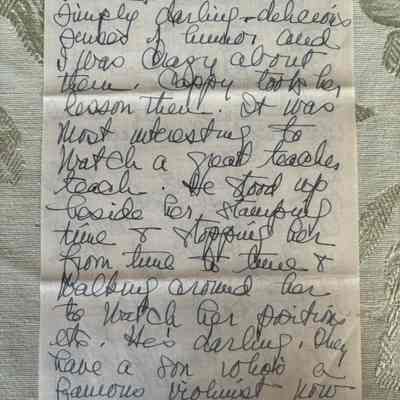 simply darling - delicious
senses of humor and
I was crazy about
them. Cappy took her
lesson then. It was
most interesting to
watch a great teacher
teach. He stood up
beside her, stamping
time & stopping her
from time to time &
walking around her
to watch her position
etc. He's darling. They
have a son who's a
famous violinist now